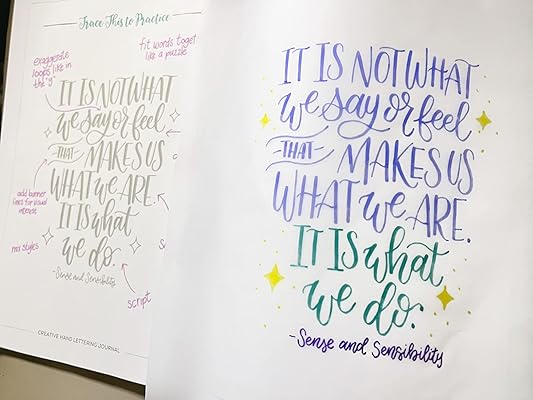 Trace This to Practice
exaggerate
loops like in
the "y"
fit words toget
like a puzzle
IT IS NOT WHAT
we say or feel
THAT MAKES US
WHAT we ARE.
IT IS what
we do.
-Sense and Sensibility
add banner
lines for visual
interest
mix styles
script
CREATIVE HAND LETTERING JOURNAL
IT IS NOT WHAT
we say or feel
THAT MAKES US
WHAT we ARE.
IT IS what
we do.
-Sense and Sensibility